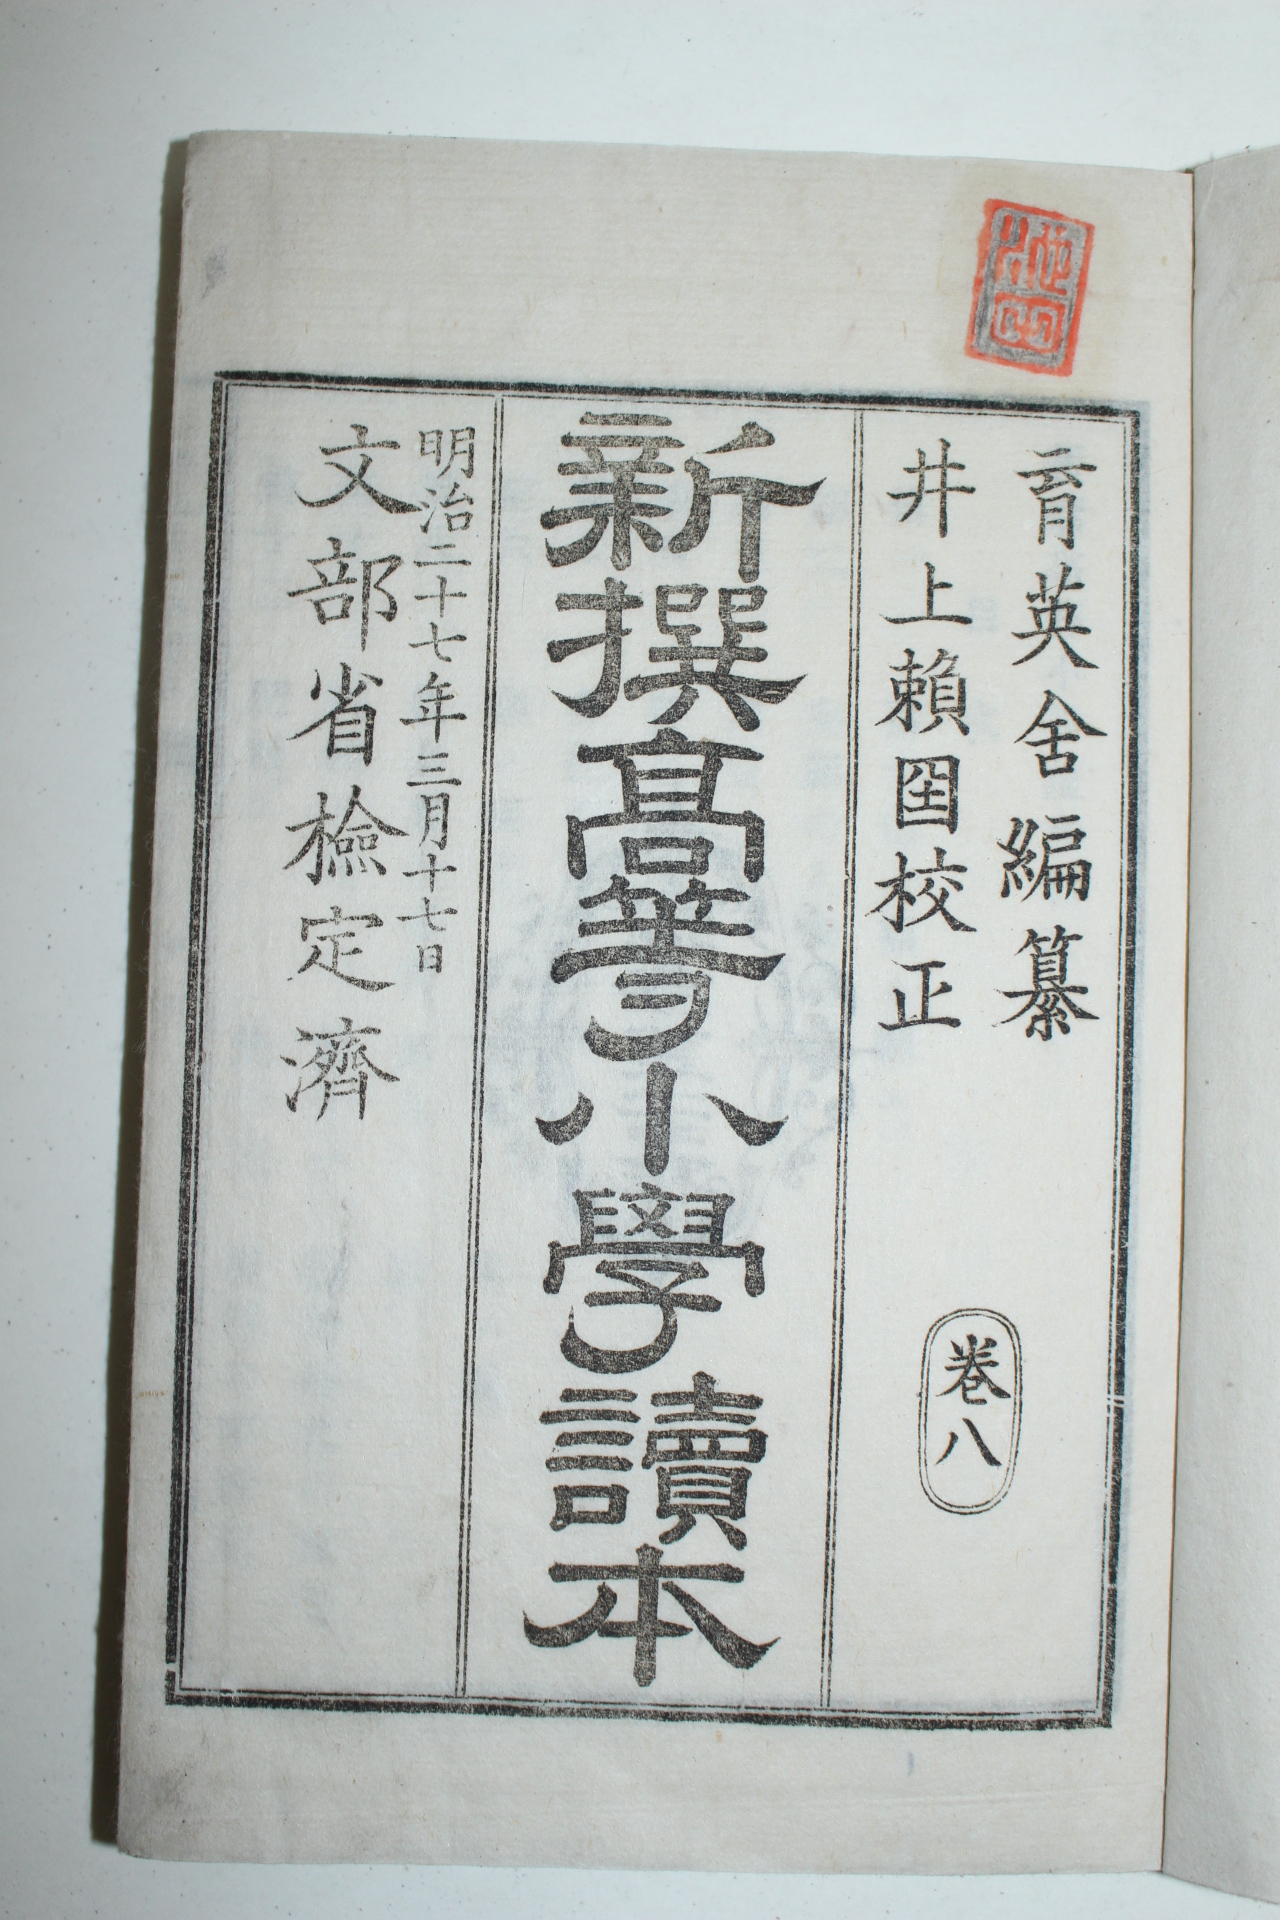 育英舍編纂
井上賴囶校正
卷八
新撰高等小學讀本
明治二十七年三月十七日
文部省檢定濟